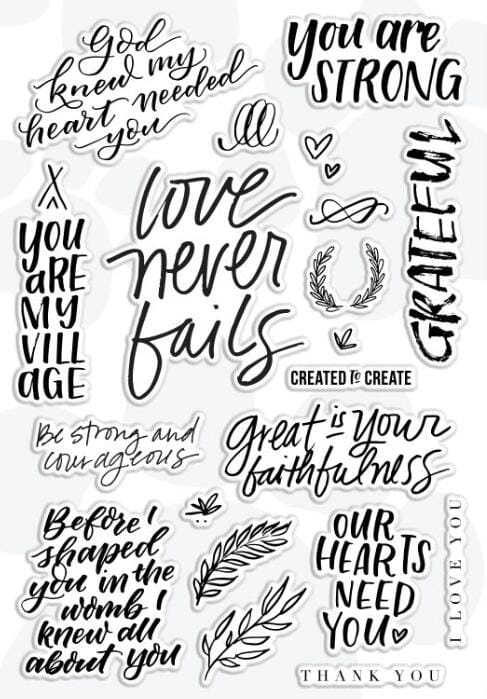 God
knew my
heart needed
you
you are
STRONG
GRATEFUL
love
never
fails
YOU
aRE
MY
VILL
aGE
CREATED To CREATE
Be strong and
courageous
Great is Your
faithfulness
Before I
shaped
you in the
womb I
knew all
about you
OUR
HEARTS
NEED
YOU
I LOVE YOU
THANK YOU